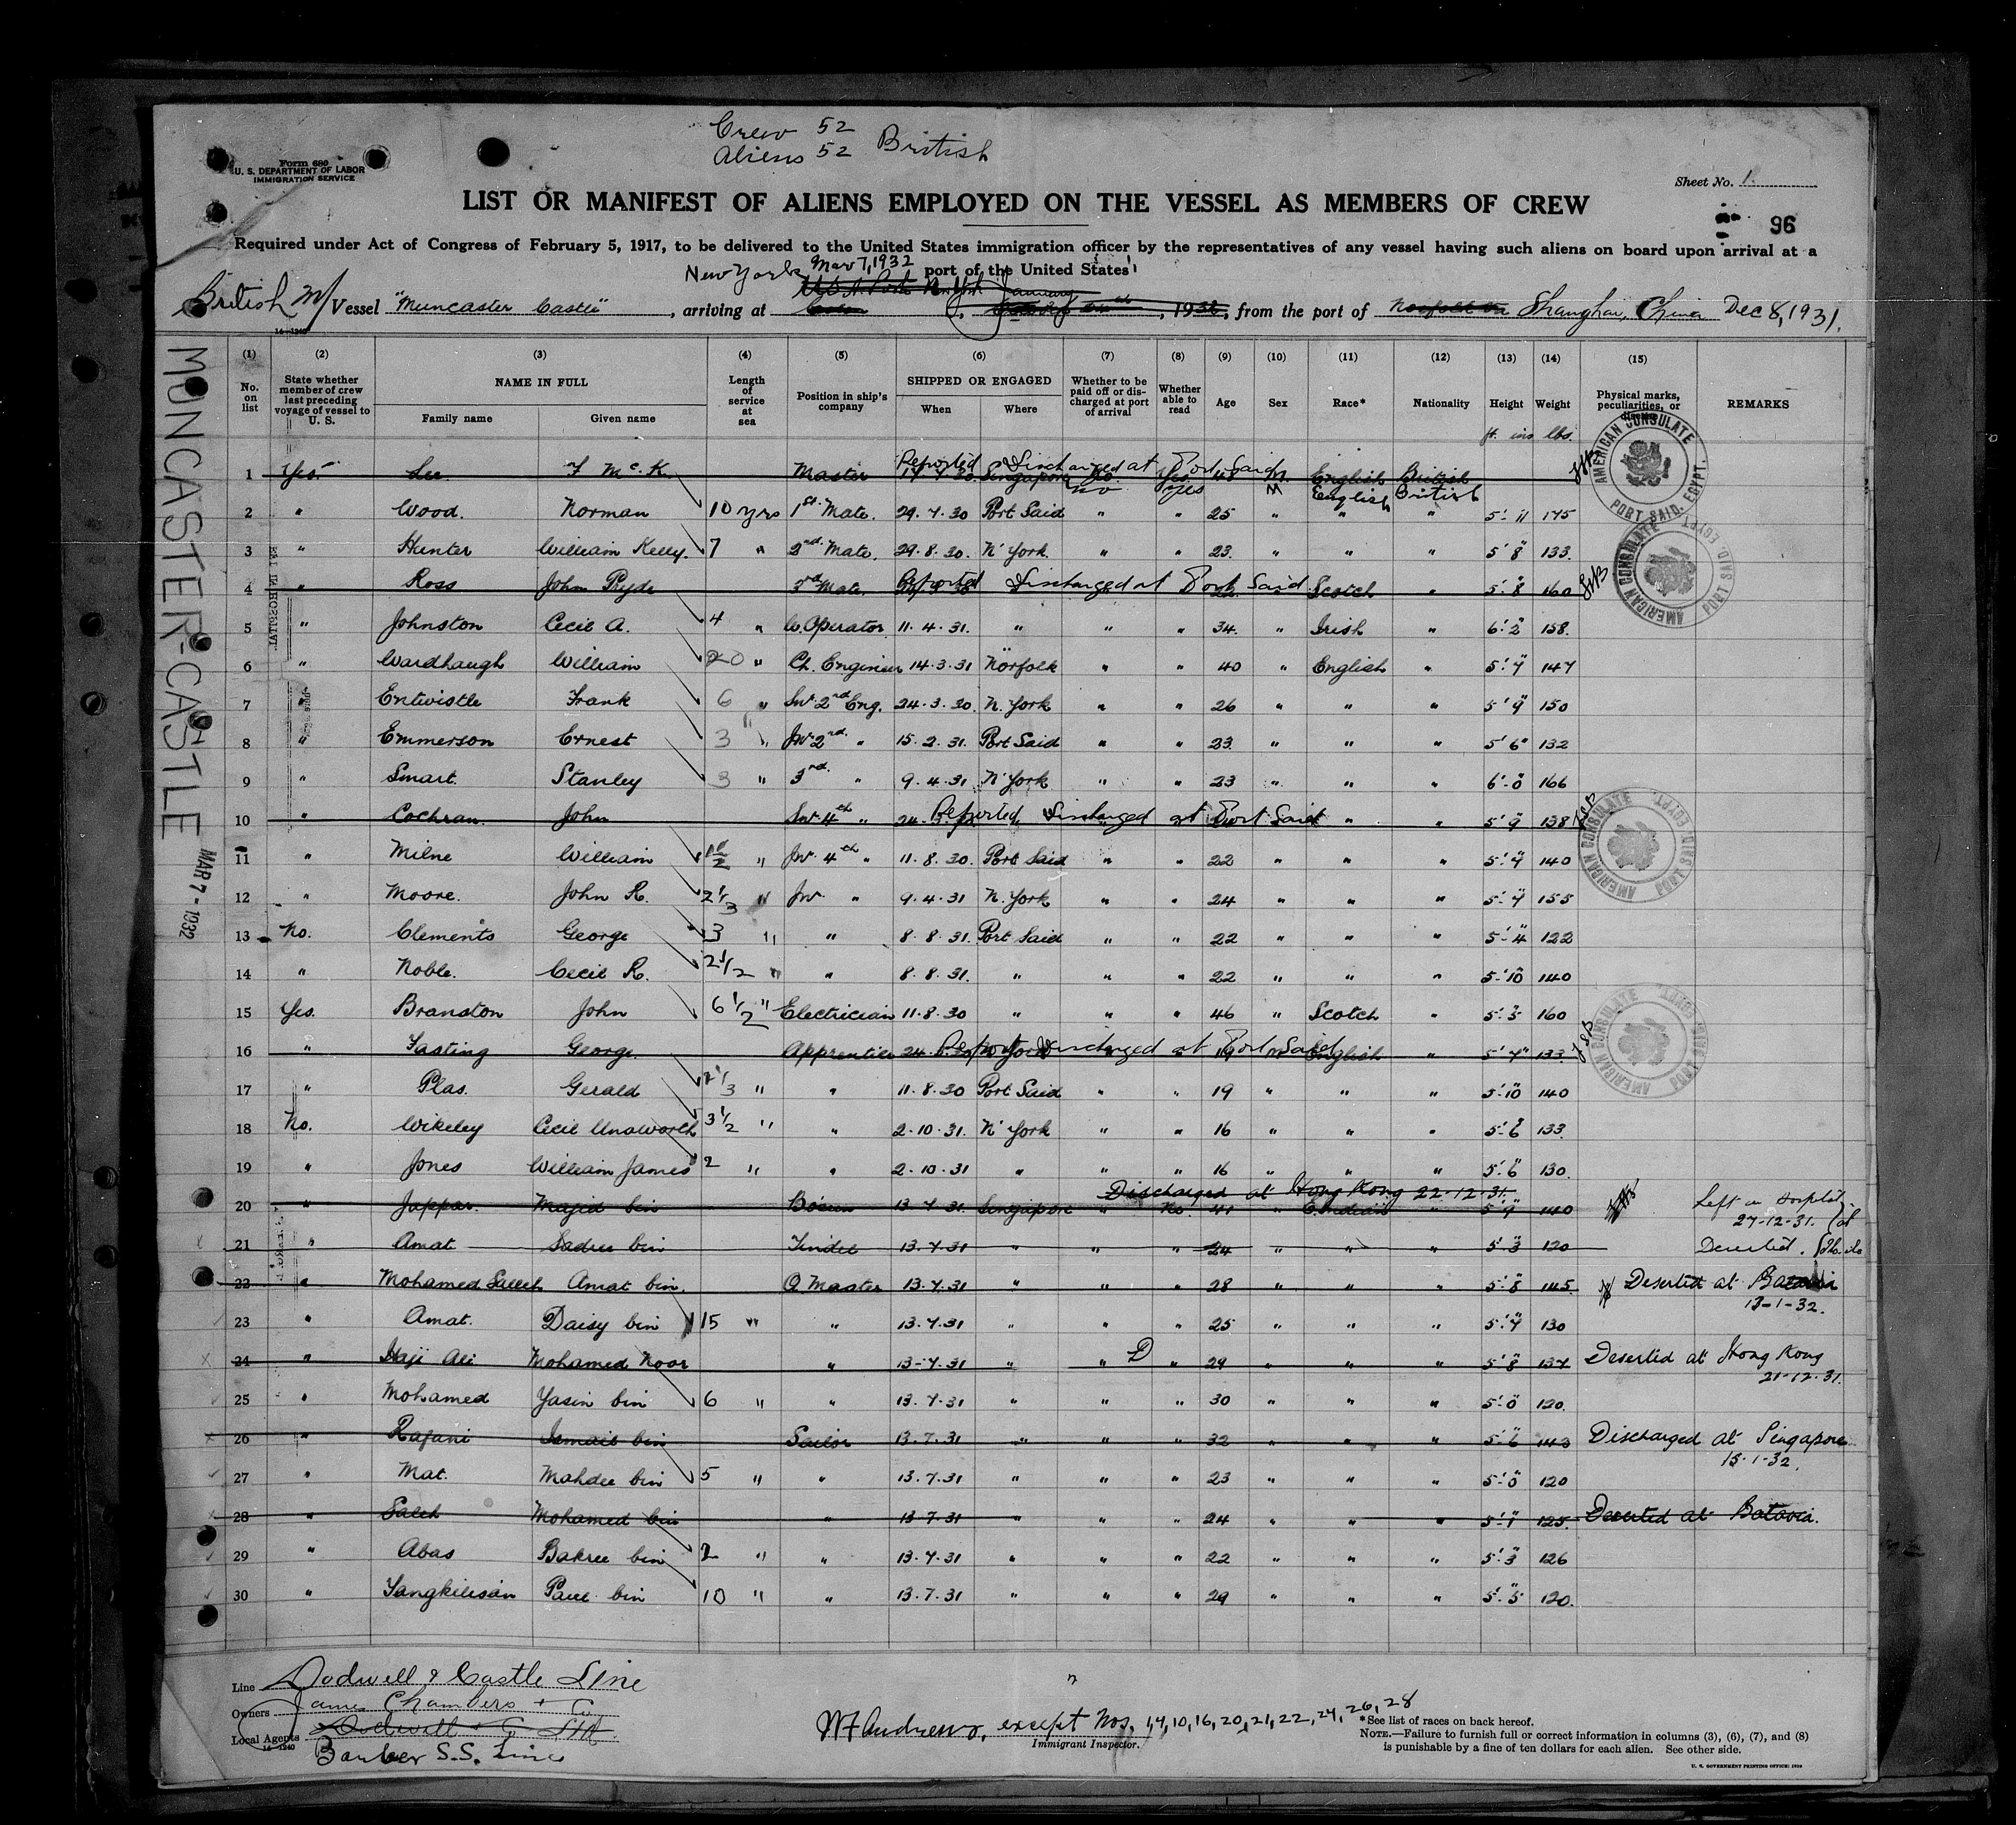 Crew 52
Aliens 52 British
Form 680
U. S. DEPARTMENT OF LABOR
IMMIGRATION SERVICE
Sheet No. 1.
LIST OR MANIFEST OF ALIENS EMPLOYED ON THE VESSEL AS MEMBERS OF CREW
96
Required under Act of Congress of February 5, 1917, to be delivered to the United States immigration officer by the representatives of any vessel having such aliens on board upon arrival at a
port of the United States
New York Mar 7, 1932
British M/ Vessel "Muncaster Castle", arriving at , 1932, from the port of Norfolk Va Shanghai, China Dec 8, 1931.
14-1240
MUNCASTER-CASTLE MAR 7 - 1932
(1) (2) (3) (4) (5) (6) (7) (8) (9) (10) (11) (12) (13) (14) (15)
No. on list
State whether member of crew last preceding voyage of vessel to U. S.
NAME IN FULL
Family name Given name
Length of service at sea
Position in ship's company
SHIPPED OR ENGAGED
When Where
Whether to be paid off or discharged at port of arrival
Whether able to read
Age Sex Race* Nationality Height Weight
Physical marks, peculiarities, or
REMARKS
ft. ins lbs.
Reported Discharged at Port Said
1 Yes. Lee. F McK. Master Singapore No. Yes. 48 M. English British
no yes M English British
2 " Wood. Norman 10 yrs 1st Mate. 29.7.30 Port Said " " 25 " " " 5'-11" 175
3 " Hunter William Kelly. 7 " 2nd Mate. 29.8.30. N' York. " " 23. " " " 5'8" 133.
4 " Ross John Pryde 3rd Mate. Reported Discharged at Port Said Scotch " 5'-8" 160
5 " Johnston Cecil A. 4 " W. Operator 11.4.31. " " " 34. " Irish " 6'-2" 158.
6 " Wardhaugh William 20 " Ch. Engineer 14.3.31 Norfolk " " 40 " English " 5'-7" 147
7 " Entwistle Frank 6 " Snr 2nd Eng. 24.3.30. N. York " " 26 " " " 5'9" 150
8 " Emmerson Ernest 3 " Jnr 2nd " 15.2.31. Port Said " " 23. " " " 5'6" 132
9 " Smart. Stanley 3 " 3rd " 9.4.31 N' York " " 23 " " " 6'-0" 166
10 " Cochran. John Snr 4th " Reported Discharged at Port Said " " 5'9" 138
11 " Milne William " Jnr 4th " 11.8.30. Port Said " " 22 " " " 5'-7" 140
12 " Moore. John R. 2 1/3 " Jnr " 9.4.31 N. York " " 24 " " " 5'-7" 155
13 No. Clements George 3 " " 8.8.31. Port Said " " 22 " " " 5'-4" 122
14 " Noble. Cecil R. 2 1/2 " " 8.8.31. " " " 22 " " " 5'-10" 140
15 Yes. Branston John 6 1/2 " Electrician 11.8.30 " " " 46 " Scotch " 5'-5" 160
16 " Fasting George. Apprentice Reported Discharged at Port Said English " 5'-7" 133.
17 " Plas. Gerald 2 1/3 " " 11.8.30 Port Said " " 19 " " " 5'-10" 140
18 No. Wikeley Cecil Unsworth 3 1/2 " " 2.10.31. N' York " " 16 " " " 5'-6" 133.
19 " Jones William James 2 " " 2.10.31 " " " 16 " " " 5'-6" 130.
Discharged at Hong Kong 22-12-31.
20 " Jappar. Majid bin Bosun 13.7.31. Singapore " No. 41 " E. Indian " 5'-9" 140 Left in Hospital 27-12-31.
21 " Amat Sadree bin Tindel 13.7.31 " " " 24 " " " 5'-3" 120 Deserted.
22 " Mohamed Saleh Amat bin. Q. Master 13.7.31 " " " 28 " " " 5'-8" 145. Deserted at Batavia
13-1-32.
23 " Amat. Daisy bin 15 " " 13.7.31 " " " 25 " " " 5'-7" 130
24 " Haji Ali Mohamed Noor " 13-7.31 " " D " 29 " " " 5'-8" 137 Deserted at Hong Kong
21-12-31.
25 " Mohamed Yasin bin 6 " " 13.7.31 " " " 30 " " " 5'-0" 120.
26 " Rajani Ismail bin Sailor 13.7.31 " " " 32 " " " 5'-6" 143 Discharged at Singapore
15-1-32.
27 " Mat. Mahdee bin 5 " " 13.7.31 " " " 23 " " " 5'-0" 120
28 " Saleh Mohamed bin " 13 7.31 " " " 24 " " " 5'-7" 125. Deserted at Batavia.
29 " Abas Bakree bin 2 " " 13.7.31 " " " 22 " " " 5'-3" 126
30 " Tangkilisan Paul bin 10 " " 13.7.31 " " " 29 " " " 5'-5" 120.
AMERICAN CONSULATE
PORT SAID, EGYPT.
AMERICAN CONSULATE
PORT SAID, EGYPT.
AMERICAN CONSULATE
PORT SAID, EGYPT.
AMERICAN CONSULATE
PORT SAID, EGYPT.
Line Dodwell & Castle Line
Owners James Chambers + Co
Local Agents Dodwell + Co Ltd.
14-1240
Barber S.S. Line
McAndrews, except Nos. 1,4,10,16,20,21,22,24,26,28
Immigrant Inspector.
*See list of races on back hereof.
NOTE.—Failure to furnish full or correct information in columns (3), (6), (7), and (8)
is punishable by a fine of ten dollars for each alien. See other side.
U. S. GOVERNMENT PRINTING OFFICE: 1930